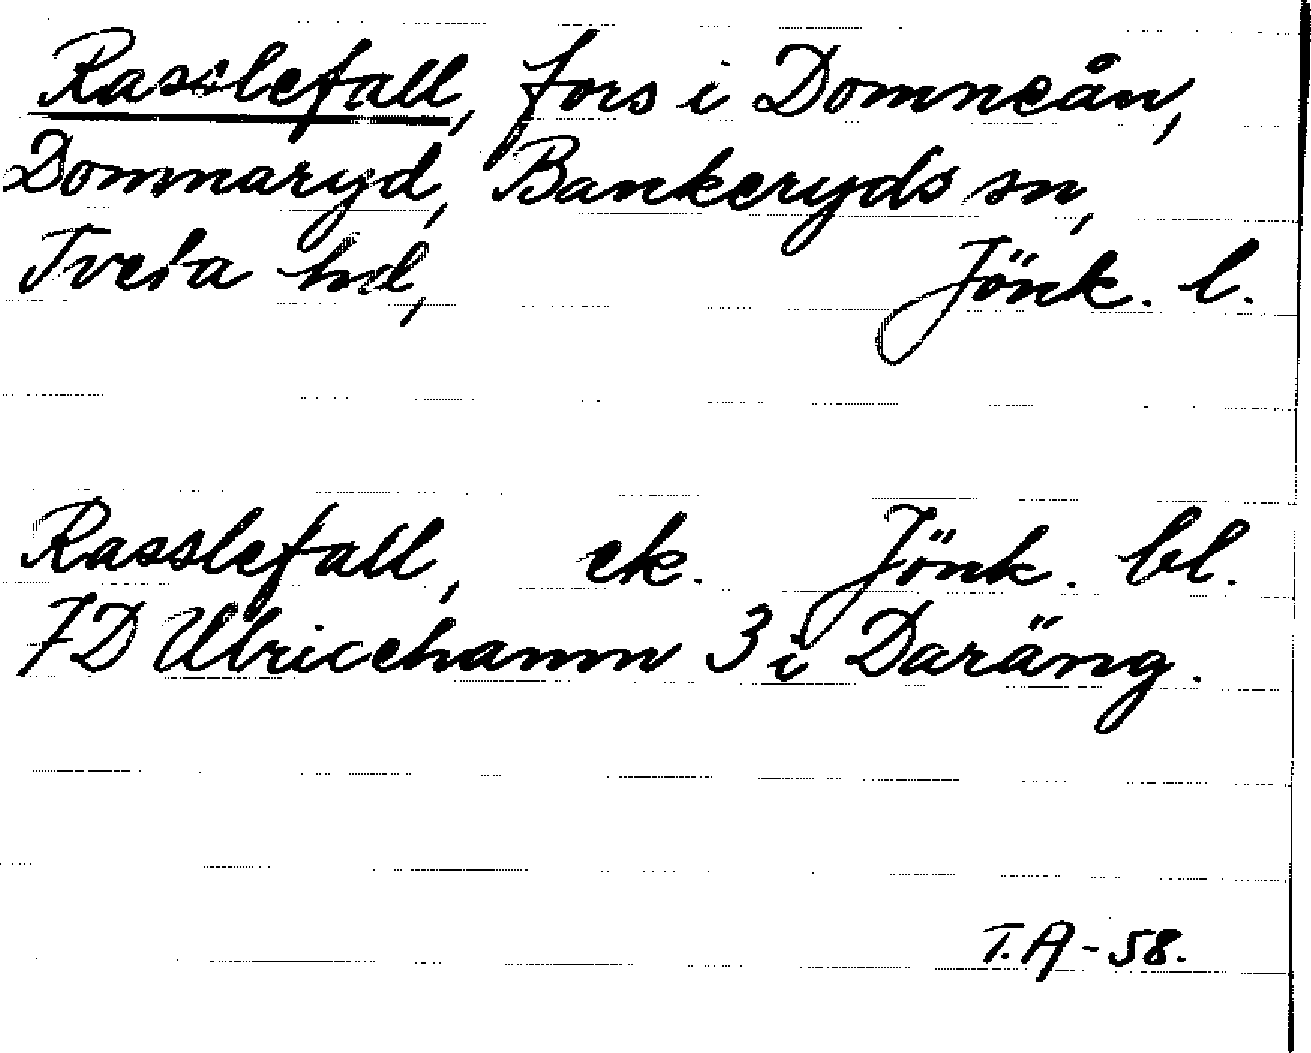 Rasslefall, fors i Domneån,
Dommaryd, Bankeryds sn,
Tveta hd, Jönk. l.
Rasslefall, ek. Jönk. bl.
7D Ulricehamn 3 i Daräng.
T.A-58.